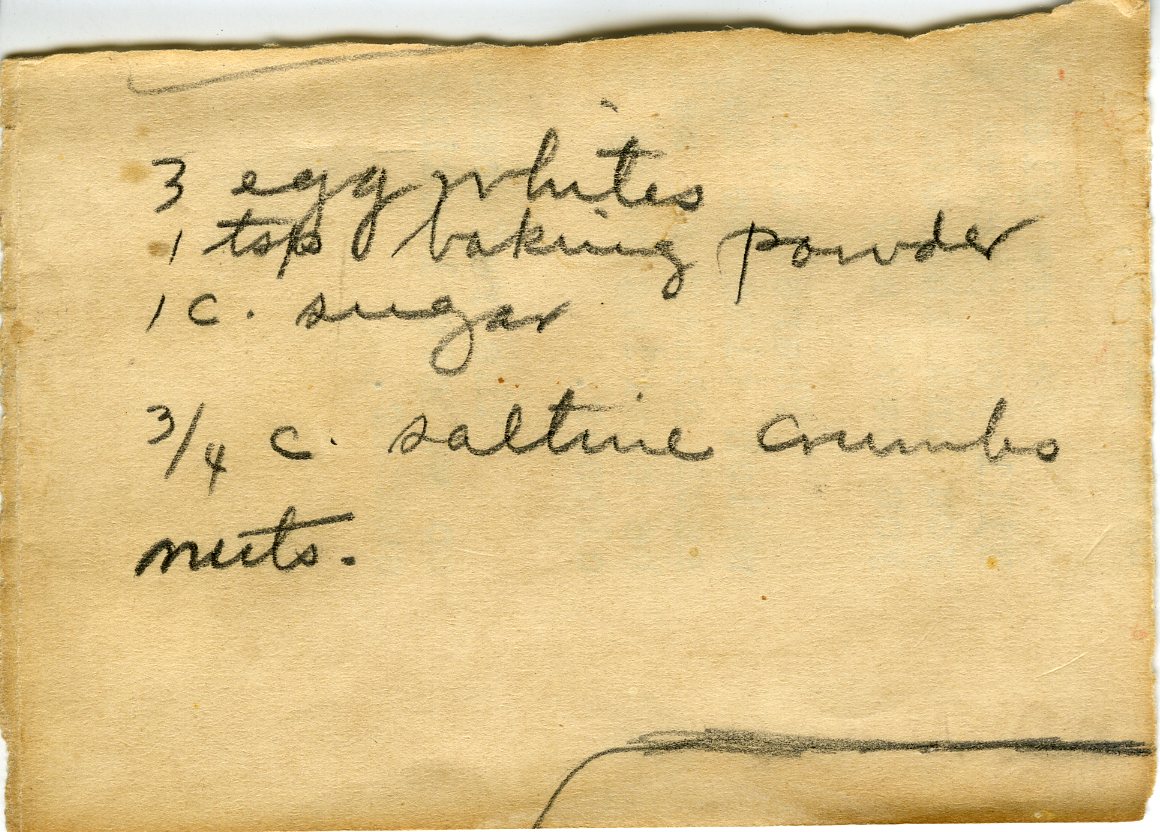 3 egg whites
1 tsp baking powder
1 c. sugar
3/4 c. saltine crumbs
nuts.